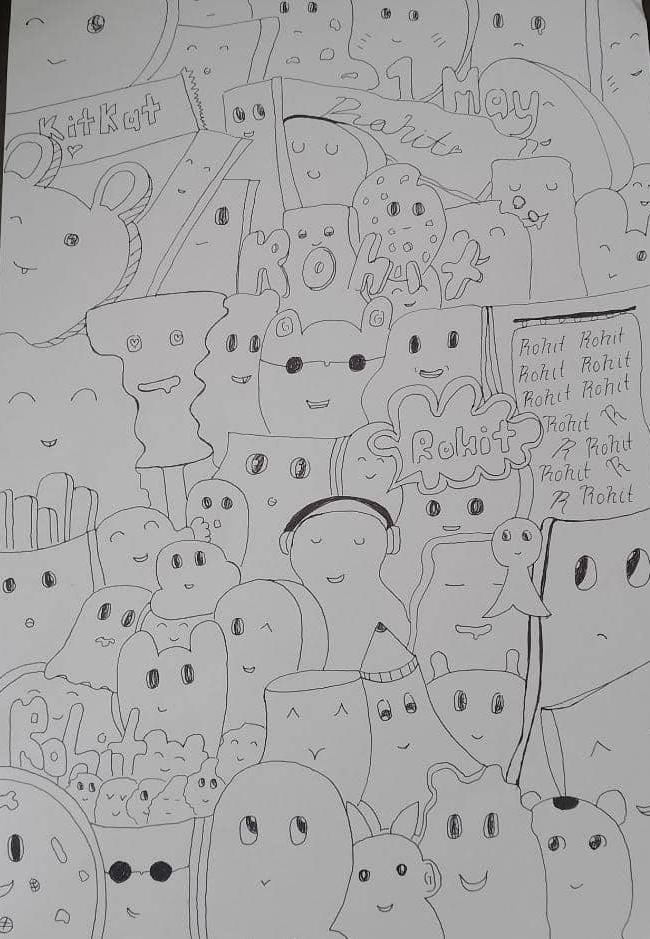 1 May
KitKat
Rohit
Rohit
Rohit Rohit
Rohit Rohit
Rohit Rohit
Rohit R
R Rohit
Rohit R
R Rohit
Rohit
Rohit